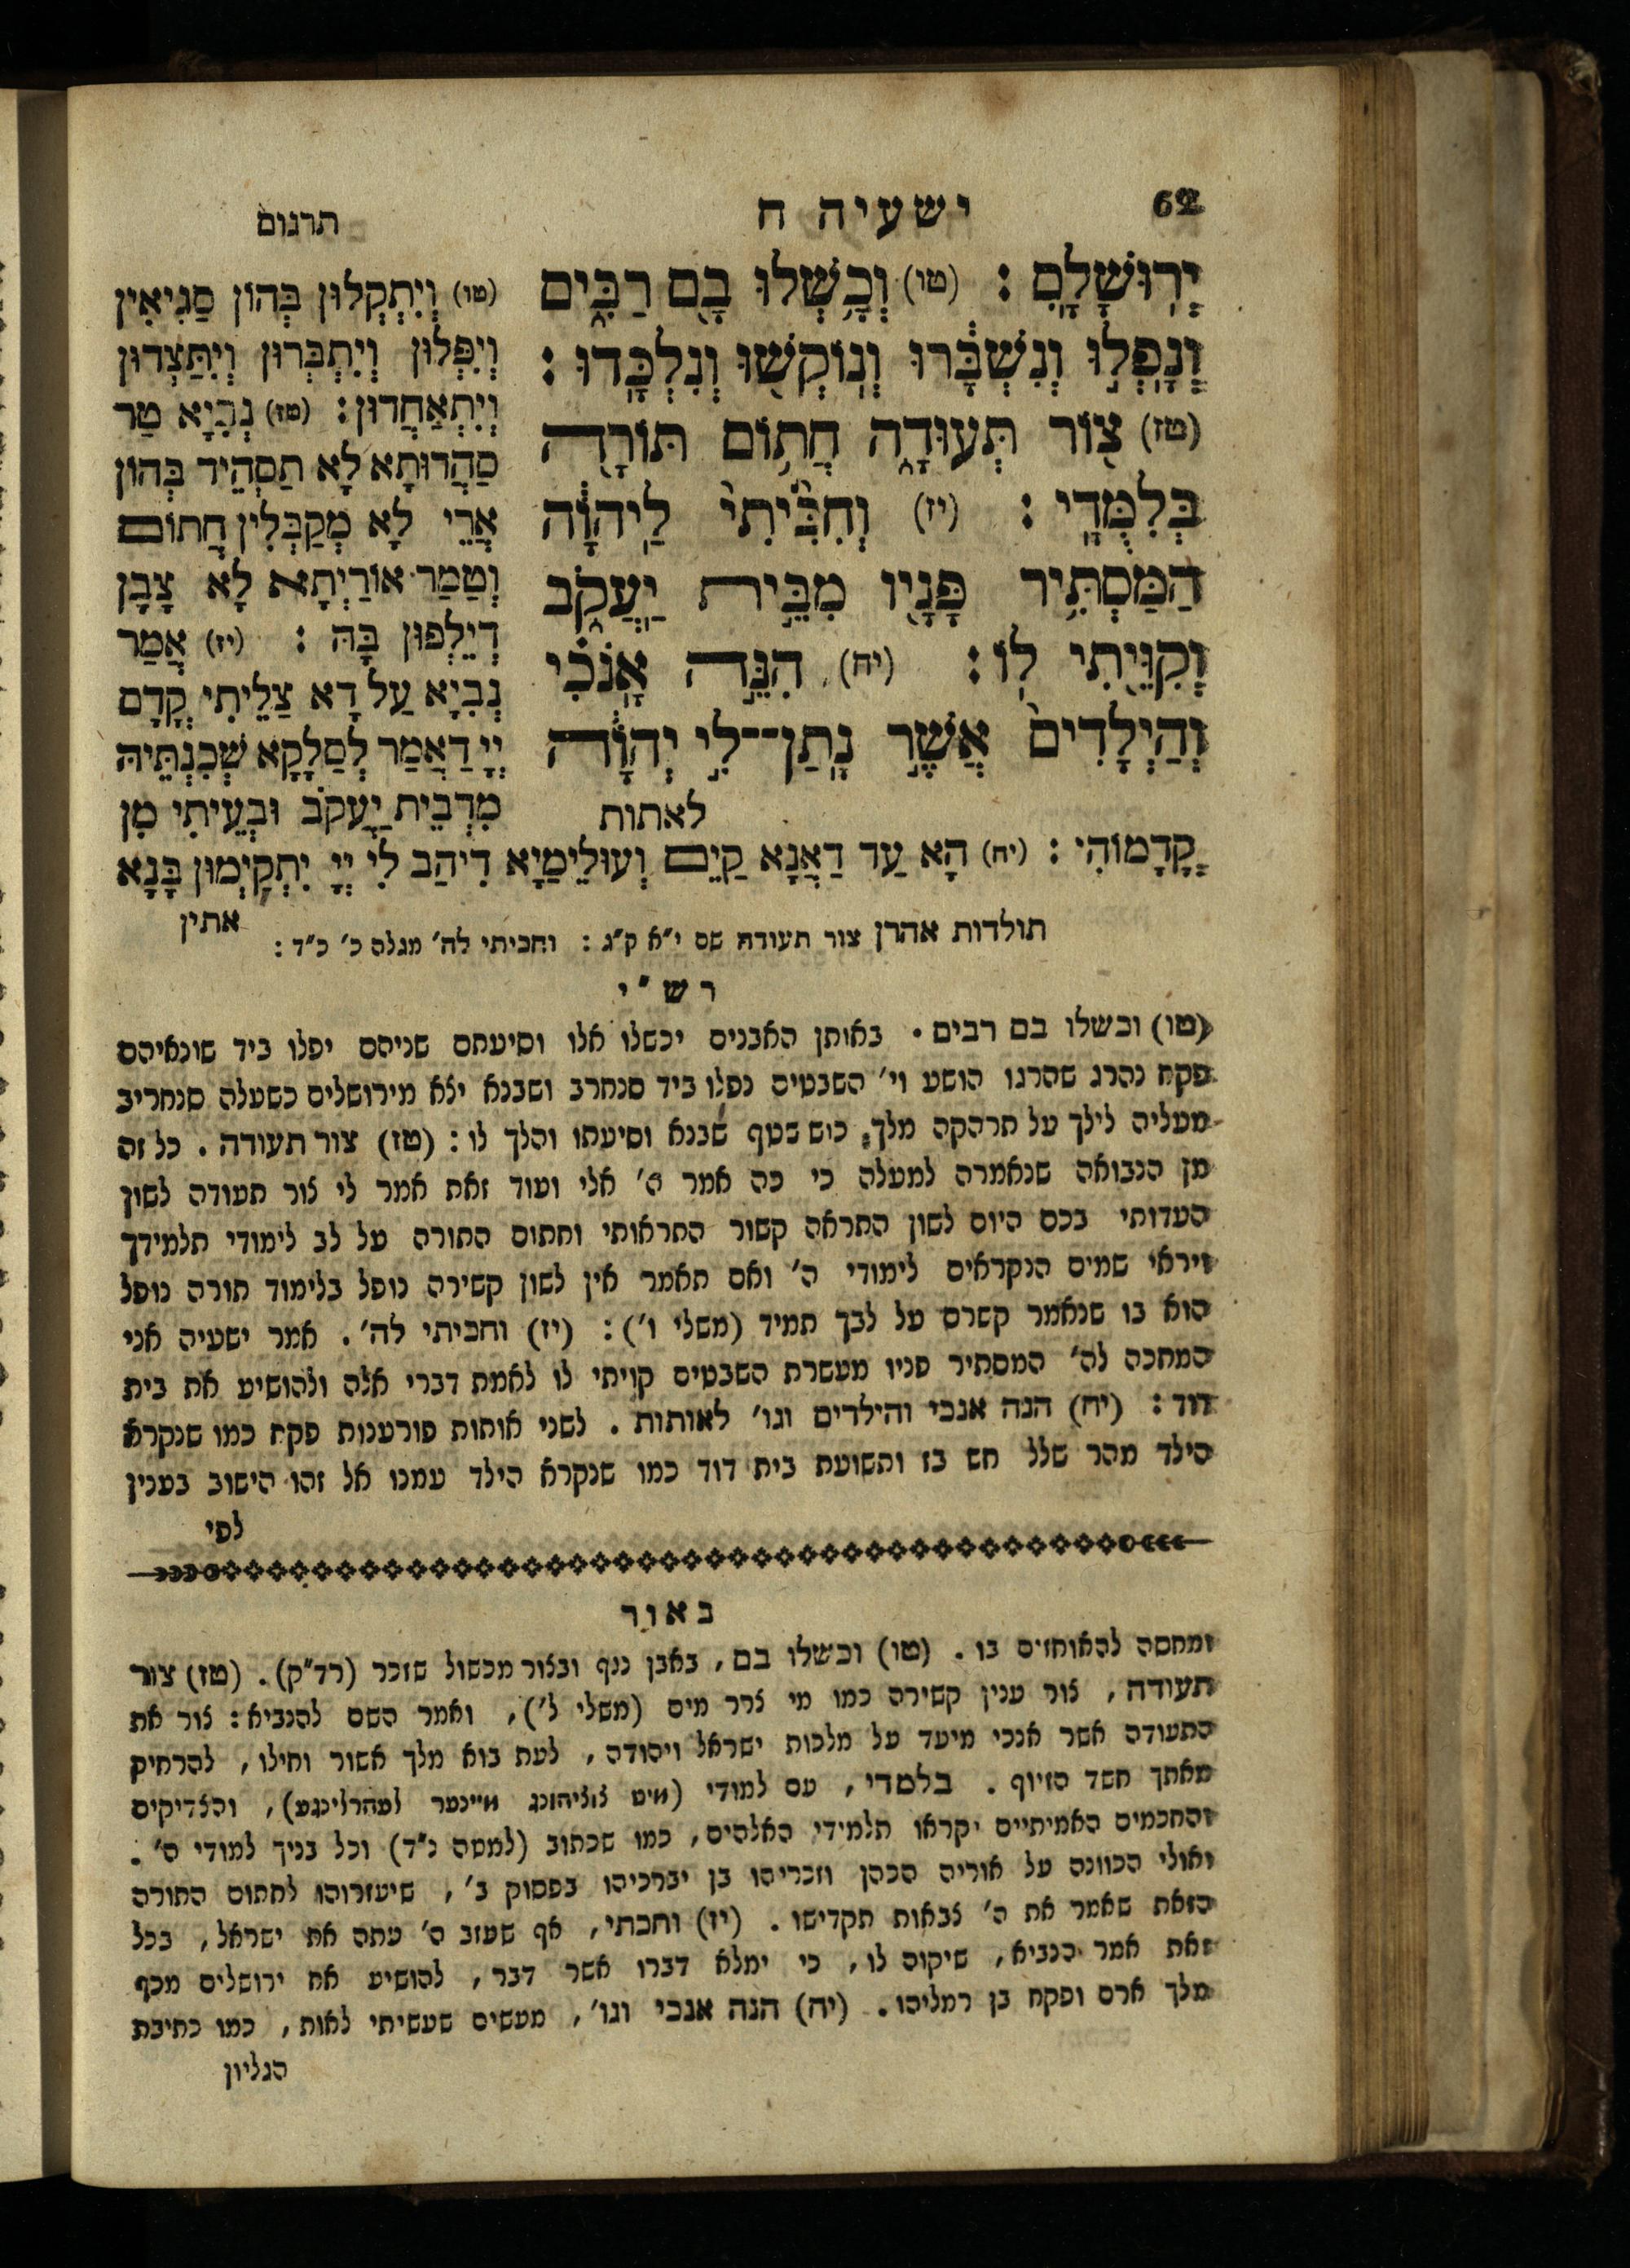 62
ישעיה ח
תרגום
יְרֽוּשָׁלָֽ͏ִם׃ (טו) וְכָ֥שְׁלוּ בָ֖ם רַבִּ֑ים
וְנָֽפְל֣וּ וְנִשְׁבָּ֔רוּ וְנֽוֹקְשׁ֖וּ וְנִלְכָּֽדוּ׃
(טז) צ֖וֹר תְּעוּדָ֑ה חֲת֥וֹם תּוֹרָ֖ה
בְּלִמֻּדָֽי׃ (יז) וְחִכִּ֙יתִי֙ לַֽיהוָ֔ה
הַמַּסְתִּ֥יר פָּנָ֖יו מִבֵּ֣ית יַֽעֲקֹ֑ב
וְקִוֵּ֖יתִי לֽוֹ׃ (יח) הִנֵּ֣ה אָֽנֹכִ֗י
וְהַיְלָדִים֙ אֲשֶׁ֣ר נָֽתַן־לִ֣י יְהוָ֔ה
לאתות
(טו) וְיִתְקְלוּן בְּהוֹן סַגִיאִין
וְיִפְּלוּן וְיִתְבְּרוּן וְיִתַּצְדוּן
וְיִתְאַחֲדוּן׃ (טז) נְבִיָא טַר
סַהֲדוּתָא לָא תַסְהֵיד בְּהוֹן
אֲרֵי לָא מְקַבְּלִין חֲתוֹם
וְטַמַר אוֹרַיְתָא לָא צָבָן
דְיֵלְפוּן בָּהּ׃ (יז) אֲמַר
נְבִיָא עַל דָא צַלֵיתִי קֳדָם
יְיָ דַאֲמַר לְסַלָקָא שְׁכִנְתֵּיהּ
מִדְבֵית יַעֲקֹב וּבְעֵיתִי מִן
קֳדָמוֹהִי׃ (יח) הָא עַד דַאֲנָא קַיֵם וְעוּלֵימַיָא דִיהַב לִי יְיָ יִתְקַיְמוּן בָּנָא
אתין
תולדות אהרן צור תעודה שם י"א ק"ג : וחכיתי לה' מגלה כ' כ"ד :
רש"י
(טו) וכשלו בם רבים. באותן האבנים יכשלו אלו וסיעתם שניהם יפלו ביד שונאיהם
פקח נהרג שהרגו הושע וי' השבטים נפלו ביד סנחרב ושבנא יצא מירושלים כשעלה סנחריב
מעליה לילך על תרהקה מלך כוש שטף שבנא וסיעתו והלך לו : (טז) צור תעודה. כל זה
מן הנבואה שנאמרה למעלה כי כה אמר ה' אלי ועוד זאת אמר לי צור תעודה לשון
העדותי בכם היום לשון התראה קשור התראותי וחתום התורה על לב לימודי תלמידך
ויראי שמים הנקראים לימודי ה' ואם תאמר אין לשון קשירה נופל בלימוד תורה נופל
הוא בו שנאמר קשרם על לבך תמיד (משלי ו') : (יז) וחכיתי לה'. אמר ישעיה אני
המחכה לה' המסתיר פניו מעשרת השבטים קויתי לו לאמת דברי אלה ולהושיע את בית
דוד : (יח) הנה אנכי והילדים וגו' לאותות. לשני אותות פורענות פקח כמו שנקרא
הילד מהר שלל חש בז ותשועת בית דוד כמו שנקרא הילד עמנו אל זהו הישוב בענין
לפי
באור
ומחסה להאוחזים בו. (טו) וכשלו בם, באבן נגף ובצור מכשול שזכר (רד"ק). (טז) צור
תעודה, צור ענין קשירה כמו מי צרר מים (משלי ל'), ואמר השם להנביא: צור את
התעודה אשר אנכי מיעד על מלכות ישראל ויהודה, לעת בוא מלך אשור וחילו, להרחיק
מאתך חשד הזיוף. בלמדי, עם למודי (מיט צוציהונג מיינער לעהרלינגע), והצדיקים
והחכמים האמיתיים יקראו תלמידי האלהים, כמו שכתוב (למטה נ"ד) וכל בניך למודי ה'.
ואולי הכוונה על אוריה הכהן וזכריהו בן יברכיהו בפסוק ב', שיעזרוהו לחתום התורה
הזאת שאמר את ה' צבאות תקדישו. (יז) וחכתי, אף שעזב ה' עתה את ישראל, בכל
זאת אמר הנביא, שיקוה לו, כי ימלא דברו אשר דבר, להושיע את ירושלים מכף
מלך ארם ופקח בן רמליהו. (יח) הנה אנכי וגו', מעשים שעשיתי לאות, כמו כתיבת
הגליון